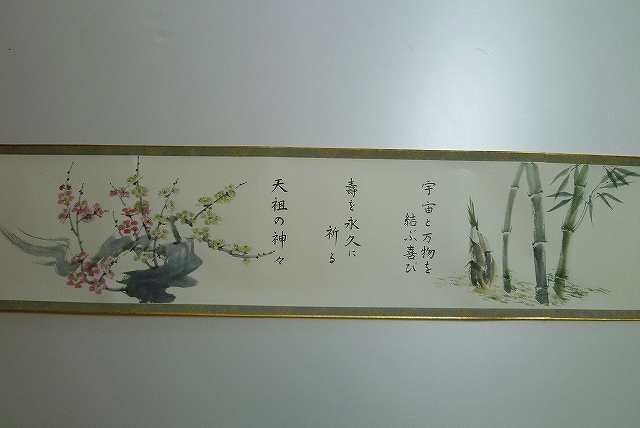 宇宙と万物を
結ぶ喜び
壽を永久に
祈る
天祖の神々